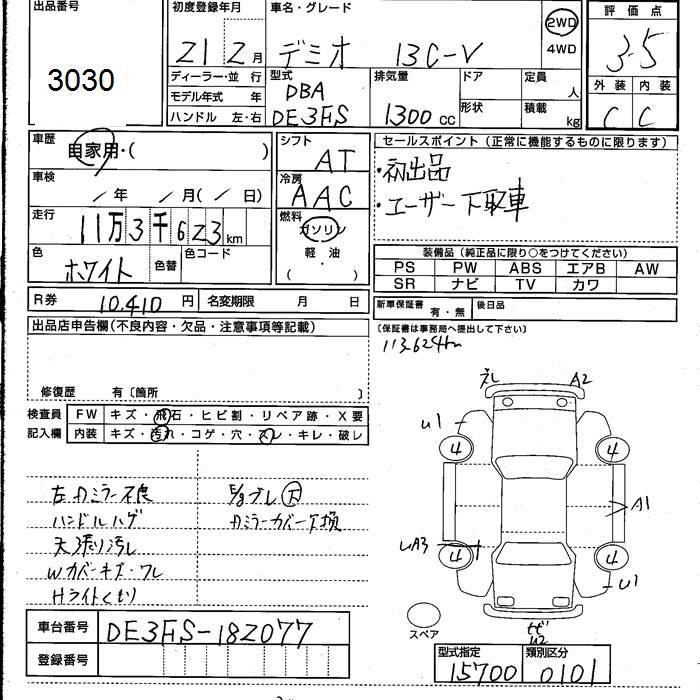 出品番号
3030
初度登録年月
21 2 月
車名・グレード
デミオ 13C-V
2WD
4WD
評価点
3.5
外装 内装
C C
ディーラー・並 行
モデル年式 年
ハンドル 左・右
型式
DBA
DE3FS
排気量
1300 cc
ドア
形状
定員
人
積載
kg
車歴
自家用・( )
車検
/ 年 / 月( / 日)
走行
11万3千623 km
色
ホワイト
色替
色コード
シフト
AT
冷房
AAC
燃料
ガソリン
軽・油
( ・ )
セールスポイント(正常に機能するものに限ります)
・初出品
・ユーザー下取車
装備品(純正品に限り○をつけてください)
PS PW ABS エアB AW
SR ナビ TV カワ
新車保証書 有・無
後日品
(保証書は事務局へ提出して下さい)
R券 10,410 円
名変期限 月 日
出品店申告欄(不良内容・欠品・注意事項等記載)
修復歴 有〔箇所 〕
113,624km
検査員記入欄
FW キズ・飛石・ヒビ割・リペア跡・X要
内装 キズ・汚れ・コゲ・穴・スレ・キレ・破レ
左Dミラー不良
ハンドルハゲ
天張り汚レ
Wカバーキズ・ワレ
Hライトくもり
Dミラーカバー欠損
A2
U1
4 4
A1
UA3
4 4
U1
スペア
U2
車台番号 DE3FS-182077
登録番号
型式指定 15700
類別区分 0101